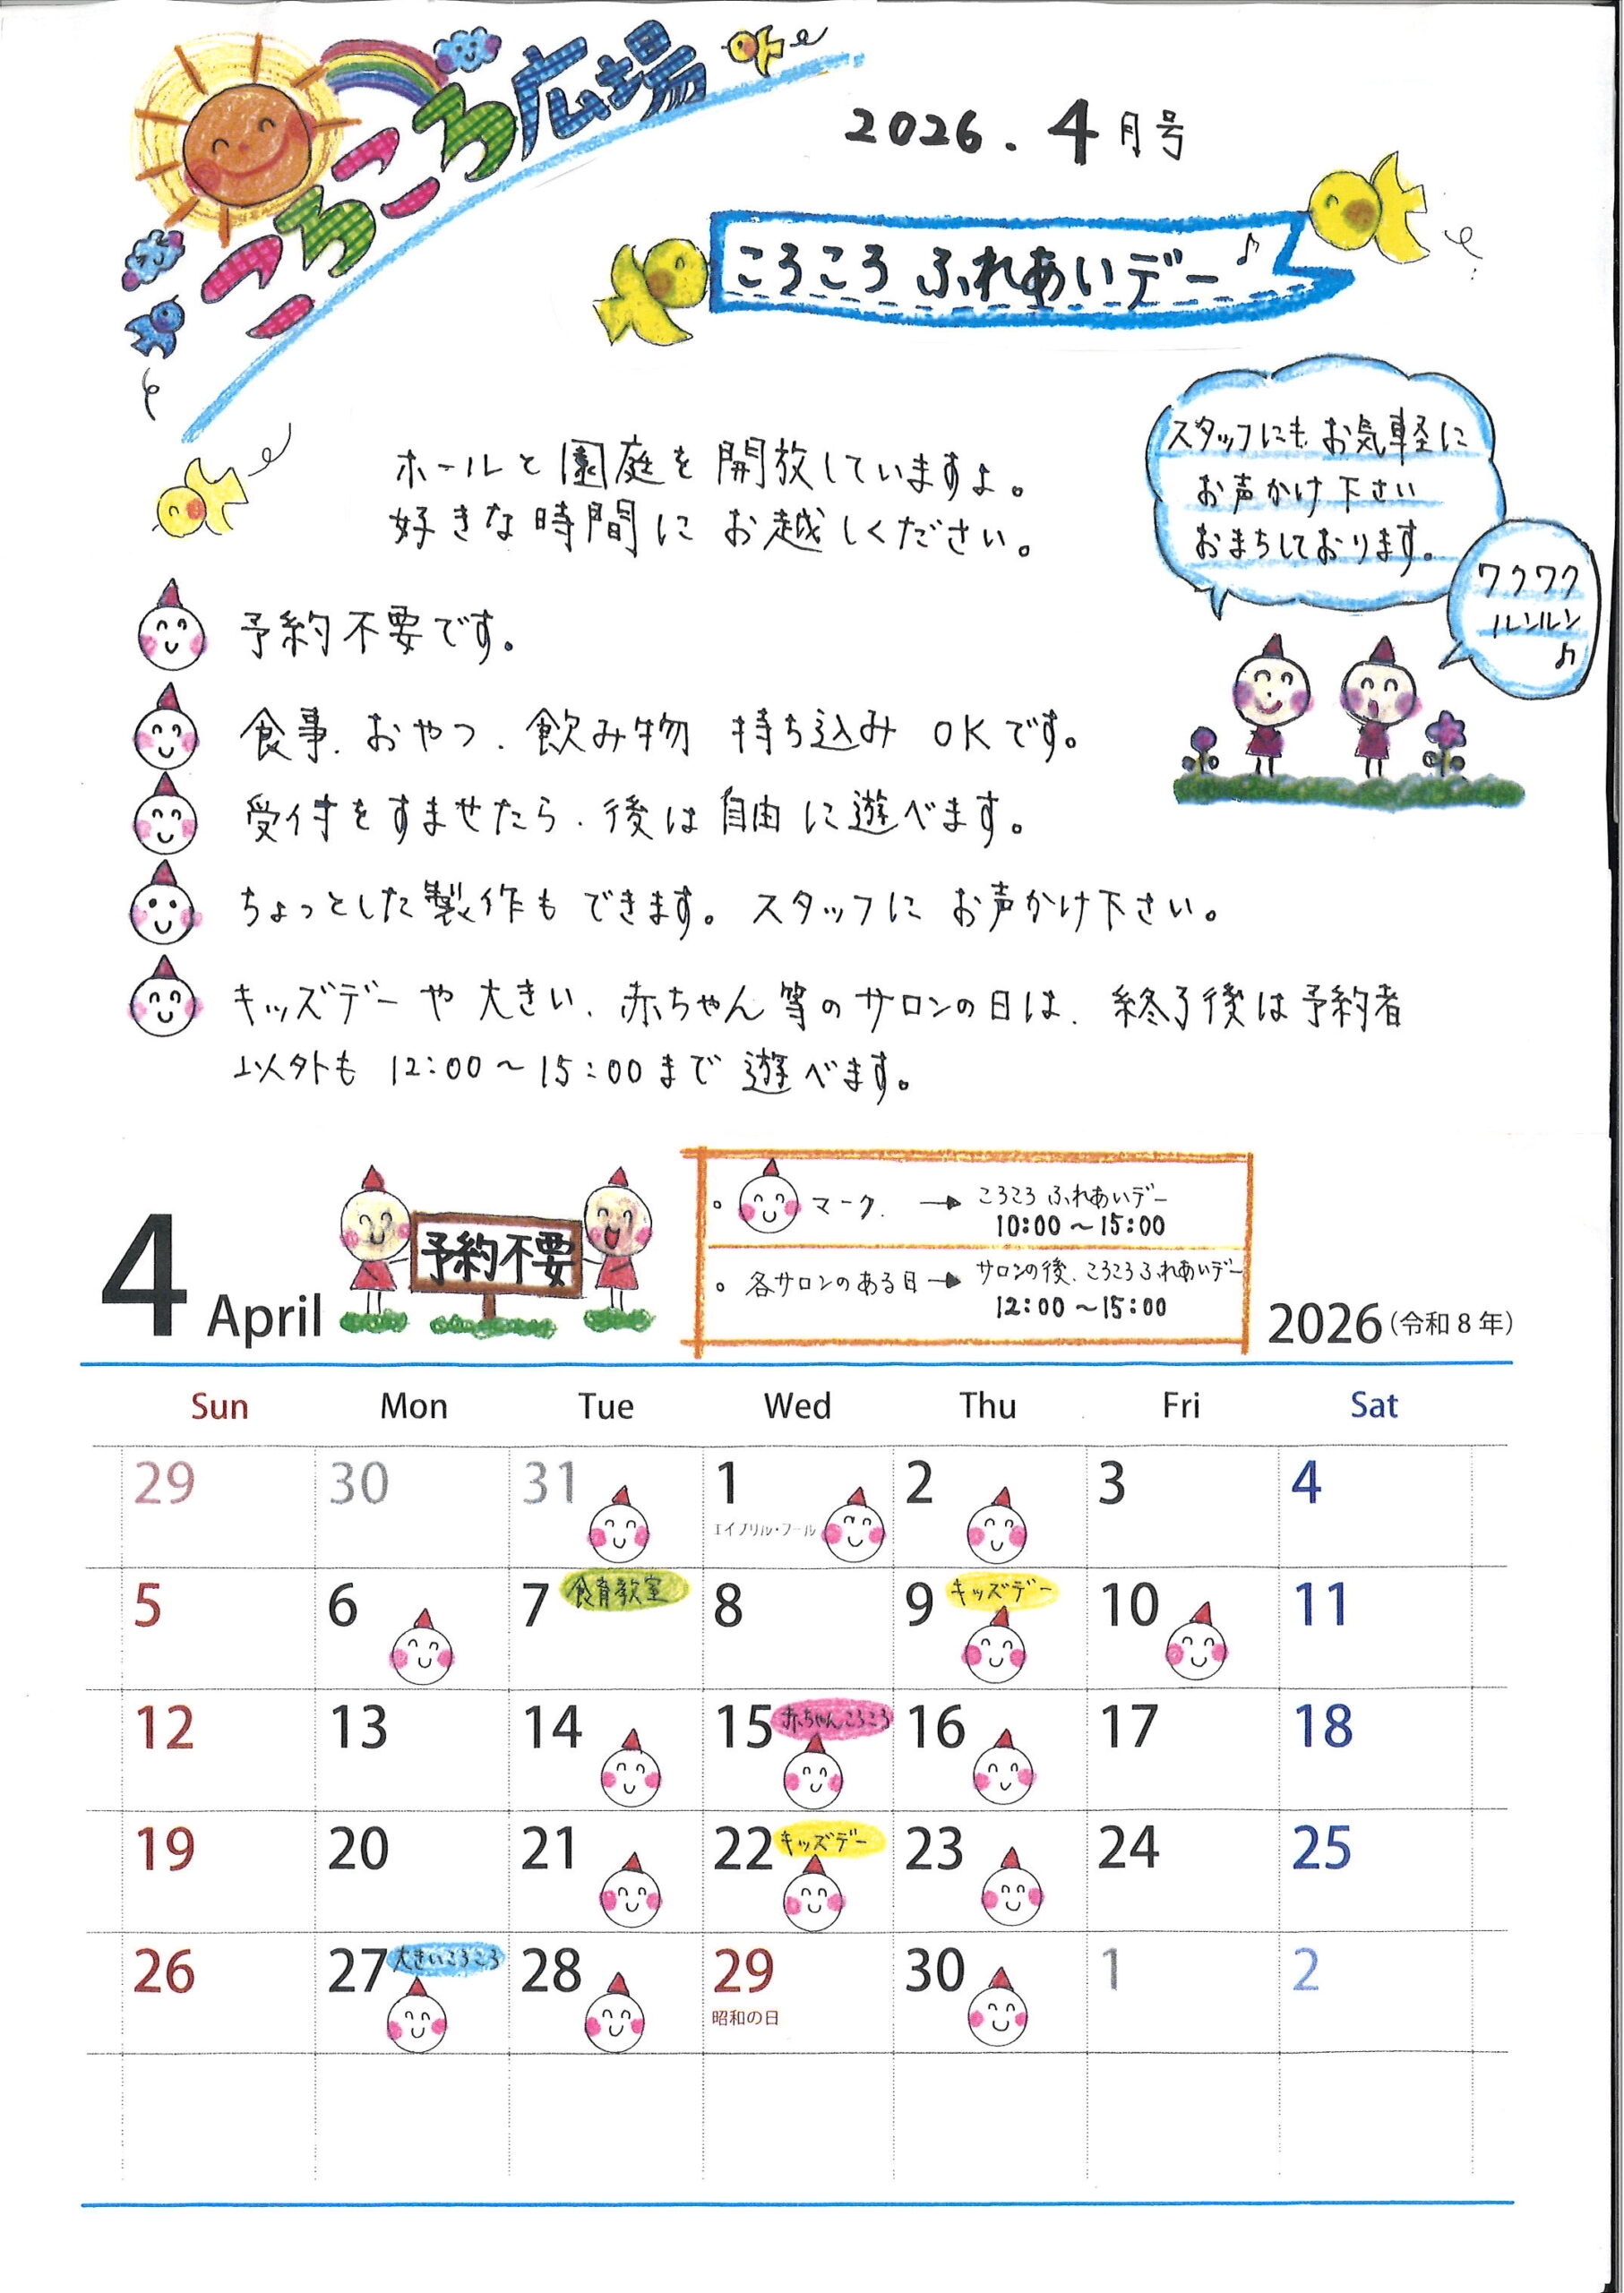 ころころ広場
2026.4月号
ころころ ふれあいデー♪
ホールと園庭を開放していますよ。
好きな時間に お越しください。
スタッフにも お気軽に
お声かけ下さい
おまちしております。
ワクワク
ルンルン
♪
予約不要です。
食事、おやつ、飲み物 持ち込み OKです。
受付をすませたら、後は自由に遊べます。
ちょっとした製作も できます。スタッフに お声かけ下さい。
キッズデーや大きい、赤ちゃん等のサロンの日は、終了後は予約者
以外も 12:00〜15:00まで遊べます。
4 April
予約不要
。マーク. → ころころ ふれあいデー
10:00〜15:00
。各サロンのある日→ サロンの後、ころころふれあいデー
12:00〜15:00
2026(令和8年)
Sun Mon Tue Wed Thu Fri Sat
29 30 31 1 2 3 4
エイプリル・フール
5 6 7 食育教室 8 9 キッズデー 10 11
12 13 14 15 赤ちゃんころころ 16 17 18
19 20 21 22 キッズデー 23 24 25
26 27 大きいころころ 28 29 30 1 2
昭和の日